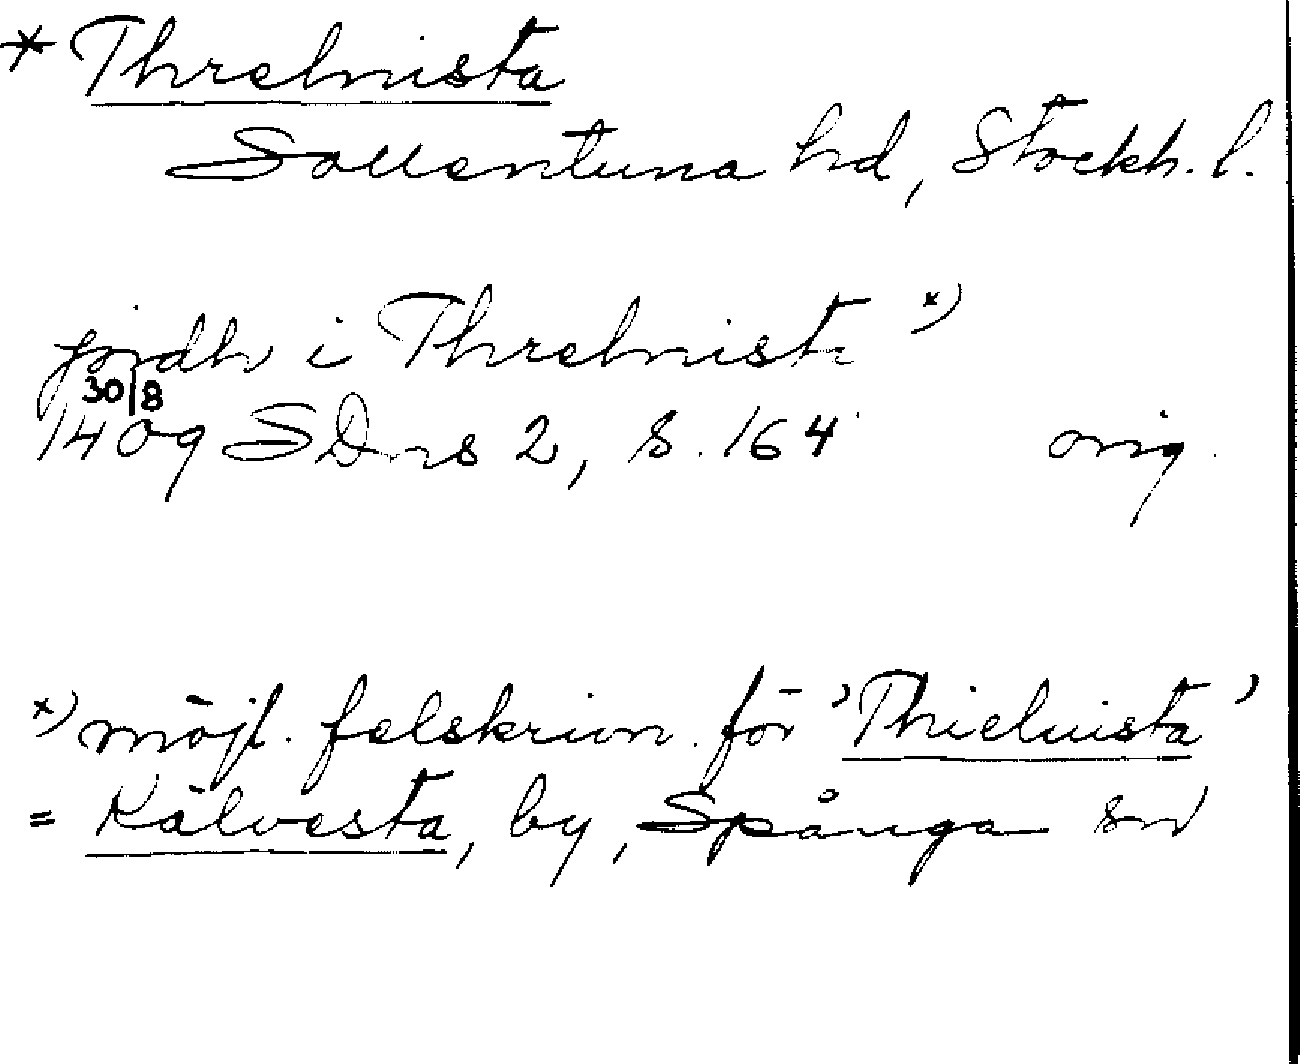 * Threlnista
Sollentuna hd, Stockh. l.
jordh i Threlnista *)
30/8
1409 SDns 2, s. 164 orig.
*) möjl. felskrivn. för 'Thieluista'
= Kälvesta, by, Spånga sn